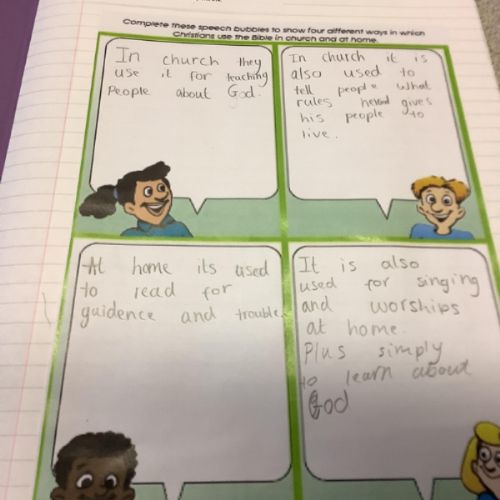 Complete these speech bubbles to show four different ways in which
Christians use the Bible in church and at home.
In church they
use it for teaching
People about God.
In church it is
also used to
tell people what
rules gives
his people to
live.
At home its used
to read for
guidence and trouble.
It is also
used for singing
and worships
at home.
Plus simply
to learn about
God